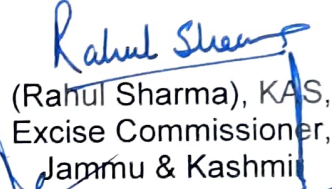 Rahul Sharma
(Rahul Sharma), KAS,
Excise Commissioner,
Jammu & Kashmir